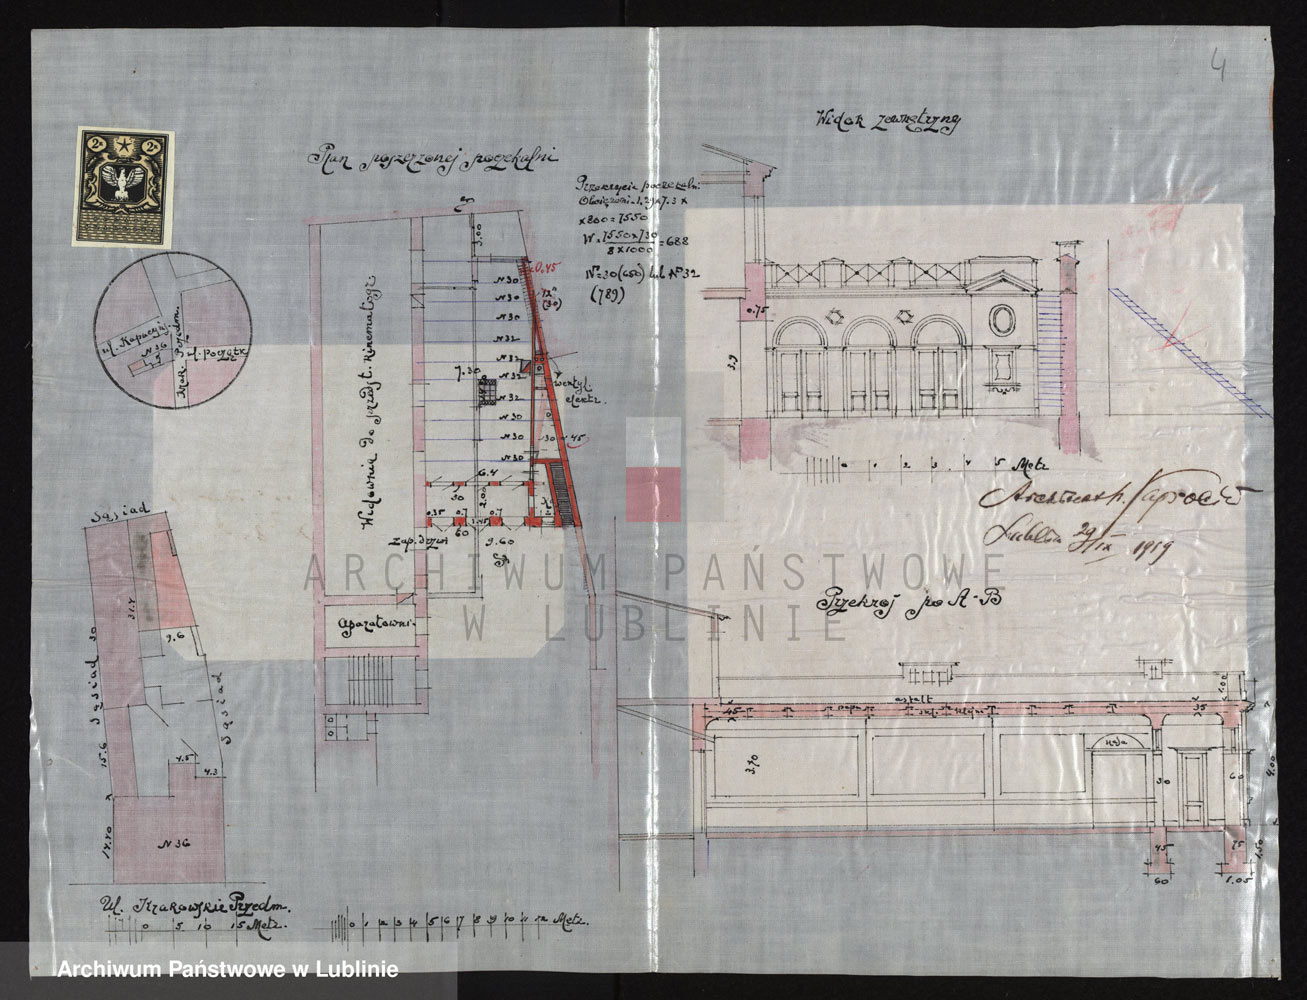 4
2 2
Plan poszerzonej poczekalni
Widok zewnętrzny
Przekrycie poczekalni
Obciążeni = 1.29 x 7.3 x
x 800 = 7550
W = 7550 x 730 = 688
8 x 1000
No 30 (650) lub No 32
(789)
ul. Kapucyń.
N 36
Krak. Przedm.
ul. początk
Widownia do przedst. kinematogr.
3.00
0.45
(30)
N 30
N 30
N 30
N 32
N 32
N 32
N 32
N 30
N 30
N 30
7.30
wentyl.
elektr.
30
45
6.4
30
2.00
0.35
0.7
1.45
0.7
60
Zap. drzwi
9.60
Aparatowni
0.75
3,9
0 1 2 3 4 5 Metr
Architekt
Lublin 29/IX 1919
Sąsiad
31.4
9.6
Sąsiad 30
Sąsiad
15.6
4.5
4.3
14.40
N 36
Ul. Krakowskie Przedm.
0 5 10 15 Metr.
0 1 2 3 4 5 6 7 8 9 10 11 12 Metr.
Przekrój po A-B
asfalt
45
papa
35
1.00
3,70
30
60
4.00
45
75
1.50
60
1.05
ARCHIWUM PAŃSTWOWE
W LUBLINIE
Archiwum Państwowe w Lublinie